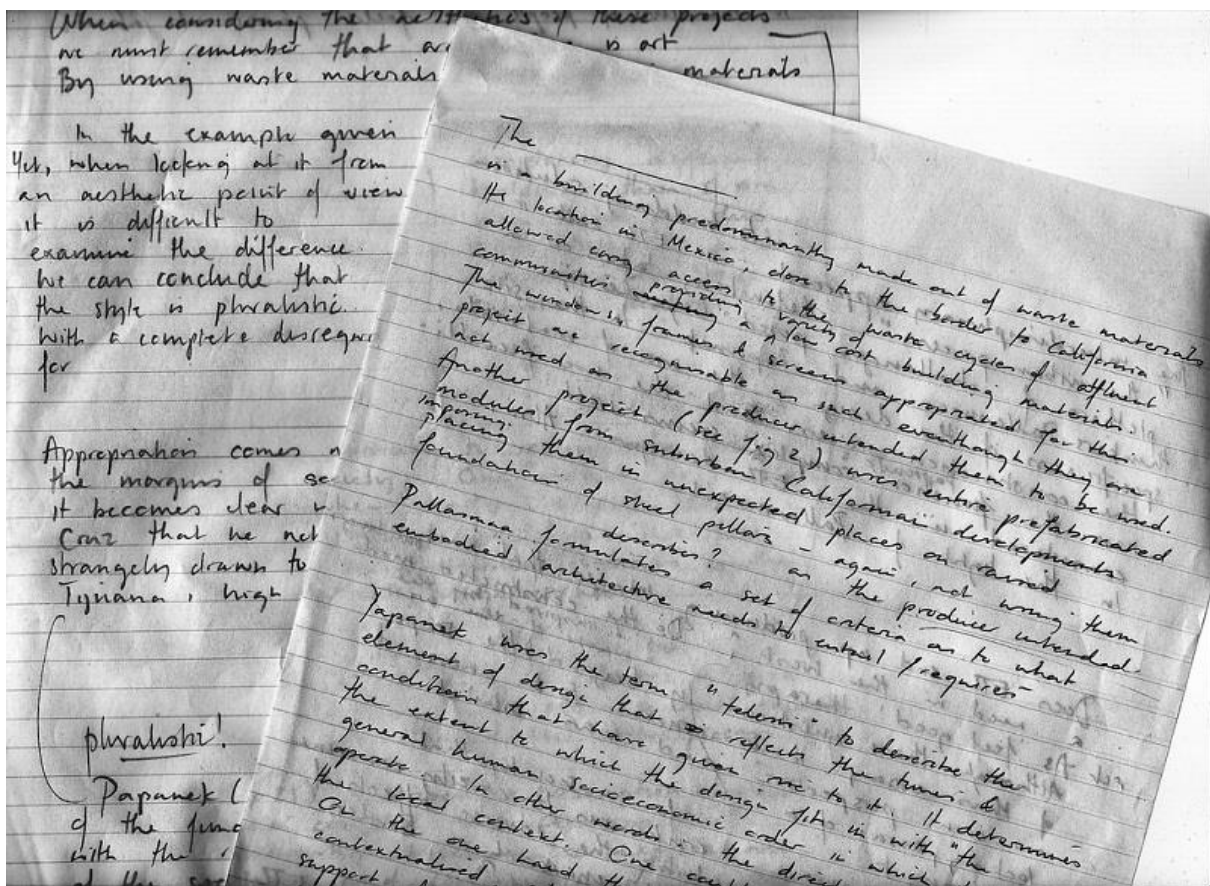 When considering the aesthetics of these projects
we must remember that is art
By using waste materials materials
In the example given
Yet, when looking at it from
an aesthetic point of view
it is difficult to
examine the difference.
We can conclude that
the style is pluralistic.
with a complete
for
Appropriation comes
the margins of
it becomes clear
Cruz that he not
strangely drawn to
Tijuana, high
pluralistic!
Papanek (
of the
with the
The
is a building predominantly made out of waste materials
Its location in Mexico, close to the border to California
allowed easy access to the waste cycles of affluent
communities providing a variety of low cost building materials.
The windows, frames & screens appropriated for this
project are recognisable as such eventhough they are
not used as the producer intended them to be used.
Another project (see fig 2) uses entire prefabricated
modules from suburban Californian developments
imposing
placing them in unexpected places on raised
foundations of steel pillars – again, not using them
describes? as the producer intended.
Pallasmaa formulates a set of criteria as to what
embodied architecture needs to entail / requires
Papanek uses the term "telesis" to describe the
element of design that reflects the times &
conditions that have given rise to it. It determines
the extent to which the design fits in with "the
general human socioeconomic order in which
operate. In other words: the
the local context. One
On the one hand
contextualised
support